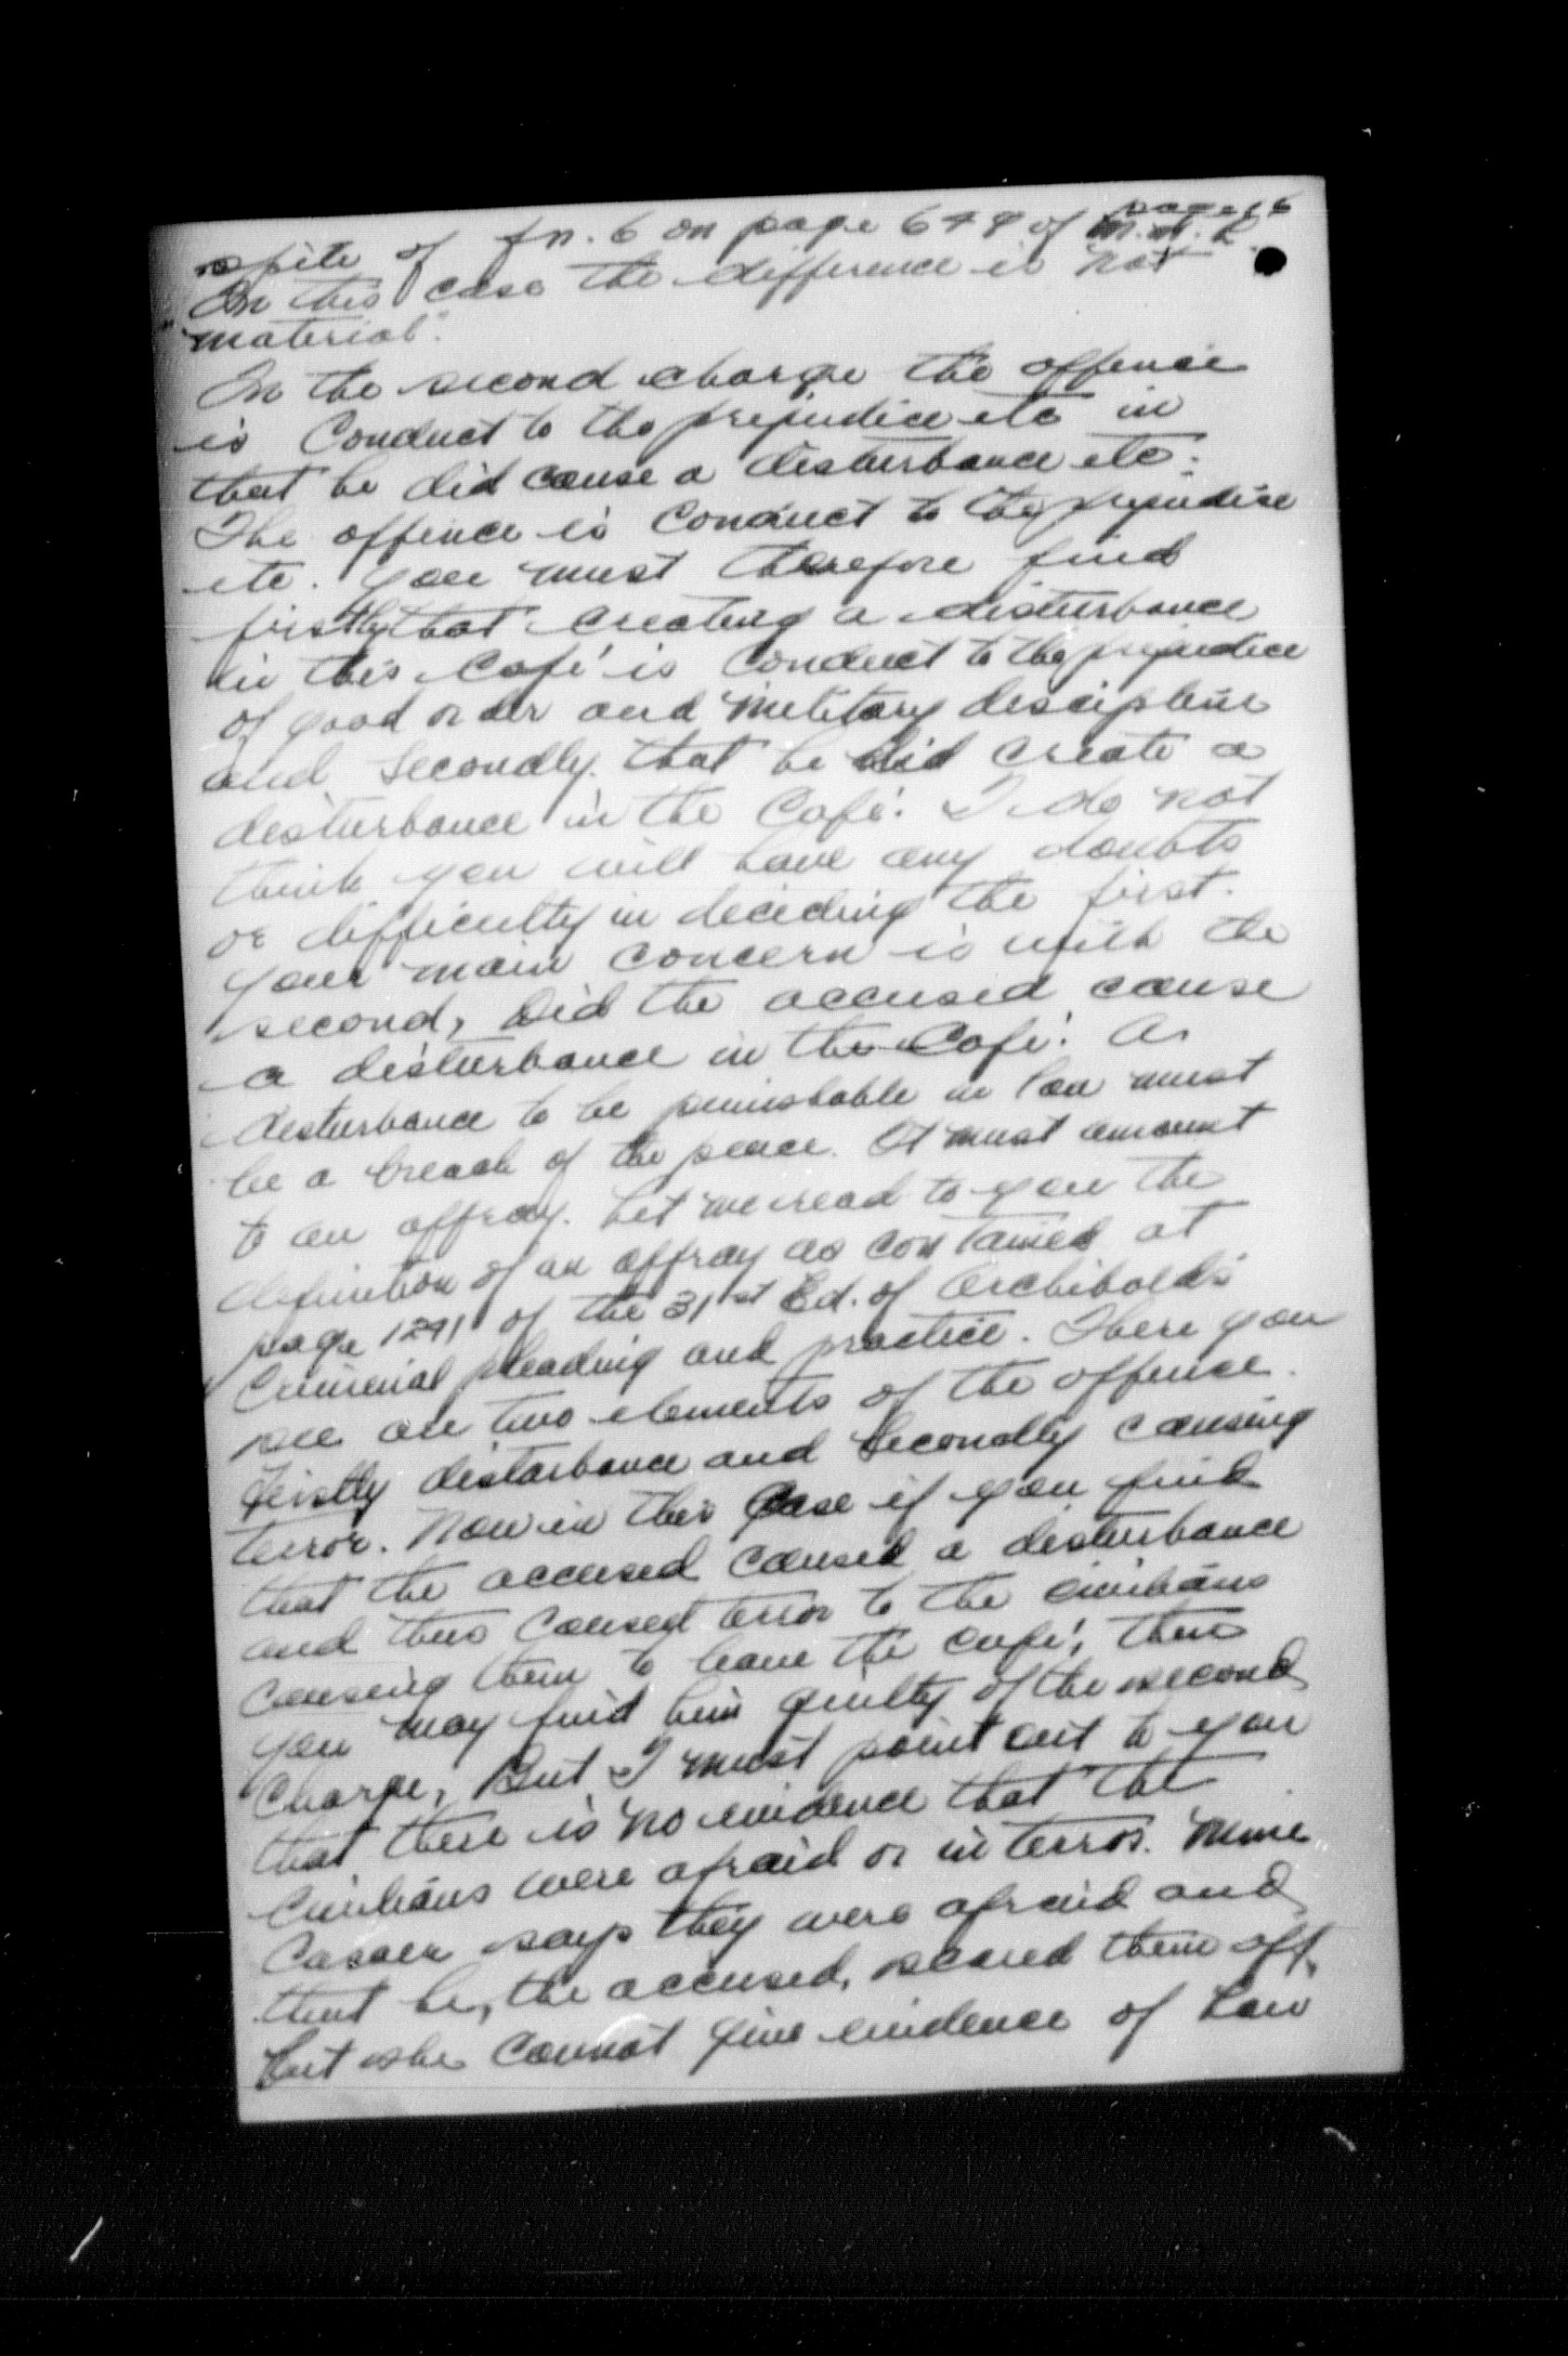 page 16
spite of fn. 6 on page 649 of M.M.L.
In this case the difference is not
"material".
In the second charge the offence
is Conduct to the prejudice etc in
that he did cause a disturbance etc.
The offence is Conduct to the prejudice
etc. You must therefore find
firstly that creating a disturbance
in this Café is Conduct to the prejudice
of good order and military discipline
and secondly that he did create a
disturbance in the Café. I do not
think you will have any doubts
or difficulty in deciding the first.
Your main concern is with the
second, Did the accused cause
a disturbance in the Café. A
disturbance to be punishable in law must
be a breach of the peace. It must amount
to an affray. Let me read to you the
definition of an affray as contained at
page 1291 of the 31st Ed. of Archibold's
Criminal pleading and practice. There you
see are two elements of the offence.
Firstly disturbance and Secondly causing
terror. Now in this Case if you find
that the accused caused a disturbance
and thus caused terror to the civilians
causing them to leave the café, then
you may find him guilty of the second
Charge, But I must point out to you
that there is no evidence that the
Civilians were afraid or in terror. Mme
says they were afraid and
that he, the accused, scared them off
but she cannot give evidence of how